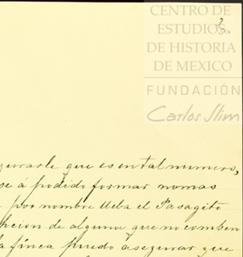 CENTRO DE
ESTUDIOS
DE HISTORIA
DE MEXICO
FUNDACIÓN
Carlos Slim
que es en tal numero,
se á podido formar nomas
por nombre lleba el Pasagito
de alguno que no comben
la finca puedo asegurar que